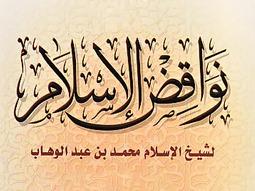 نواقض الإسلام
لشيخ الإسلام محمد بن عبد الوهاب